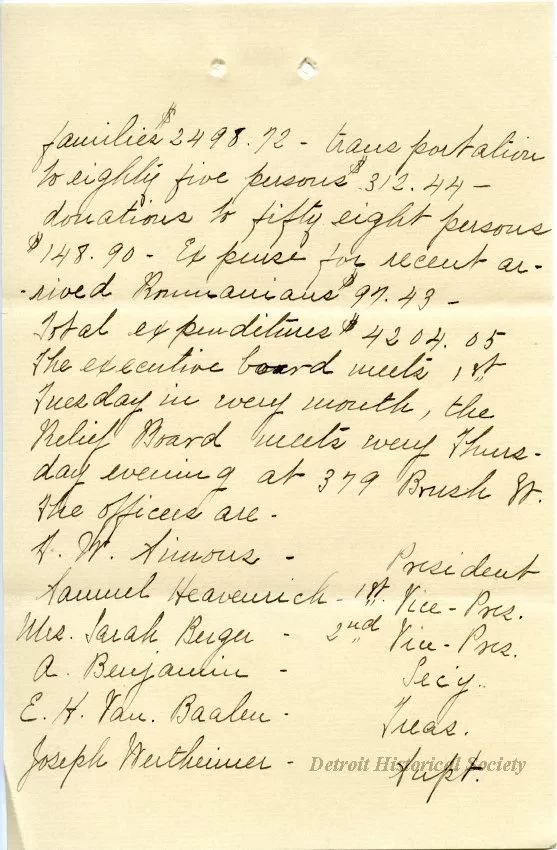 families $2498.72 - transportation
to eighty five persons $312.44 -
donations to fifty eight persons
$148.90 - Expense for recent ar-
-rived Roumanians $97.43 -
Total expenditures $4204.05
The executive board meets 1st
Tuesday in every month, the
Relief Board meets every Thurs-
day evening at 379 Brush St.
The officers are -
D. W. Simons - President
Samuel Heavenrich - 1st Vice-Pres.
Mrs. Sarah Berger - 2nd Vice-Pres.
A. Benjamin - Sec'y.
E. H. Van. Baalen - Treas.
Joseph Wertheimer - Supt.
Detroit Historical Society